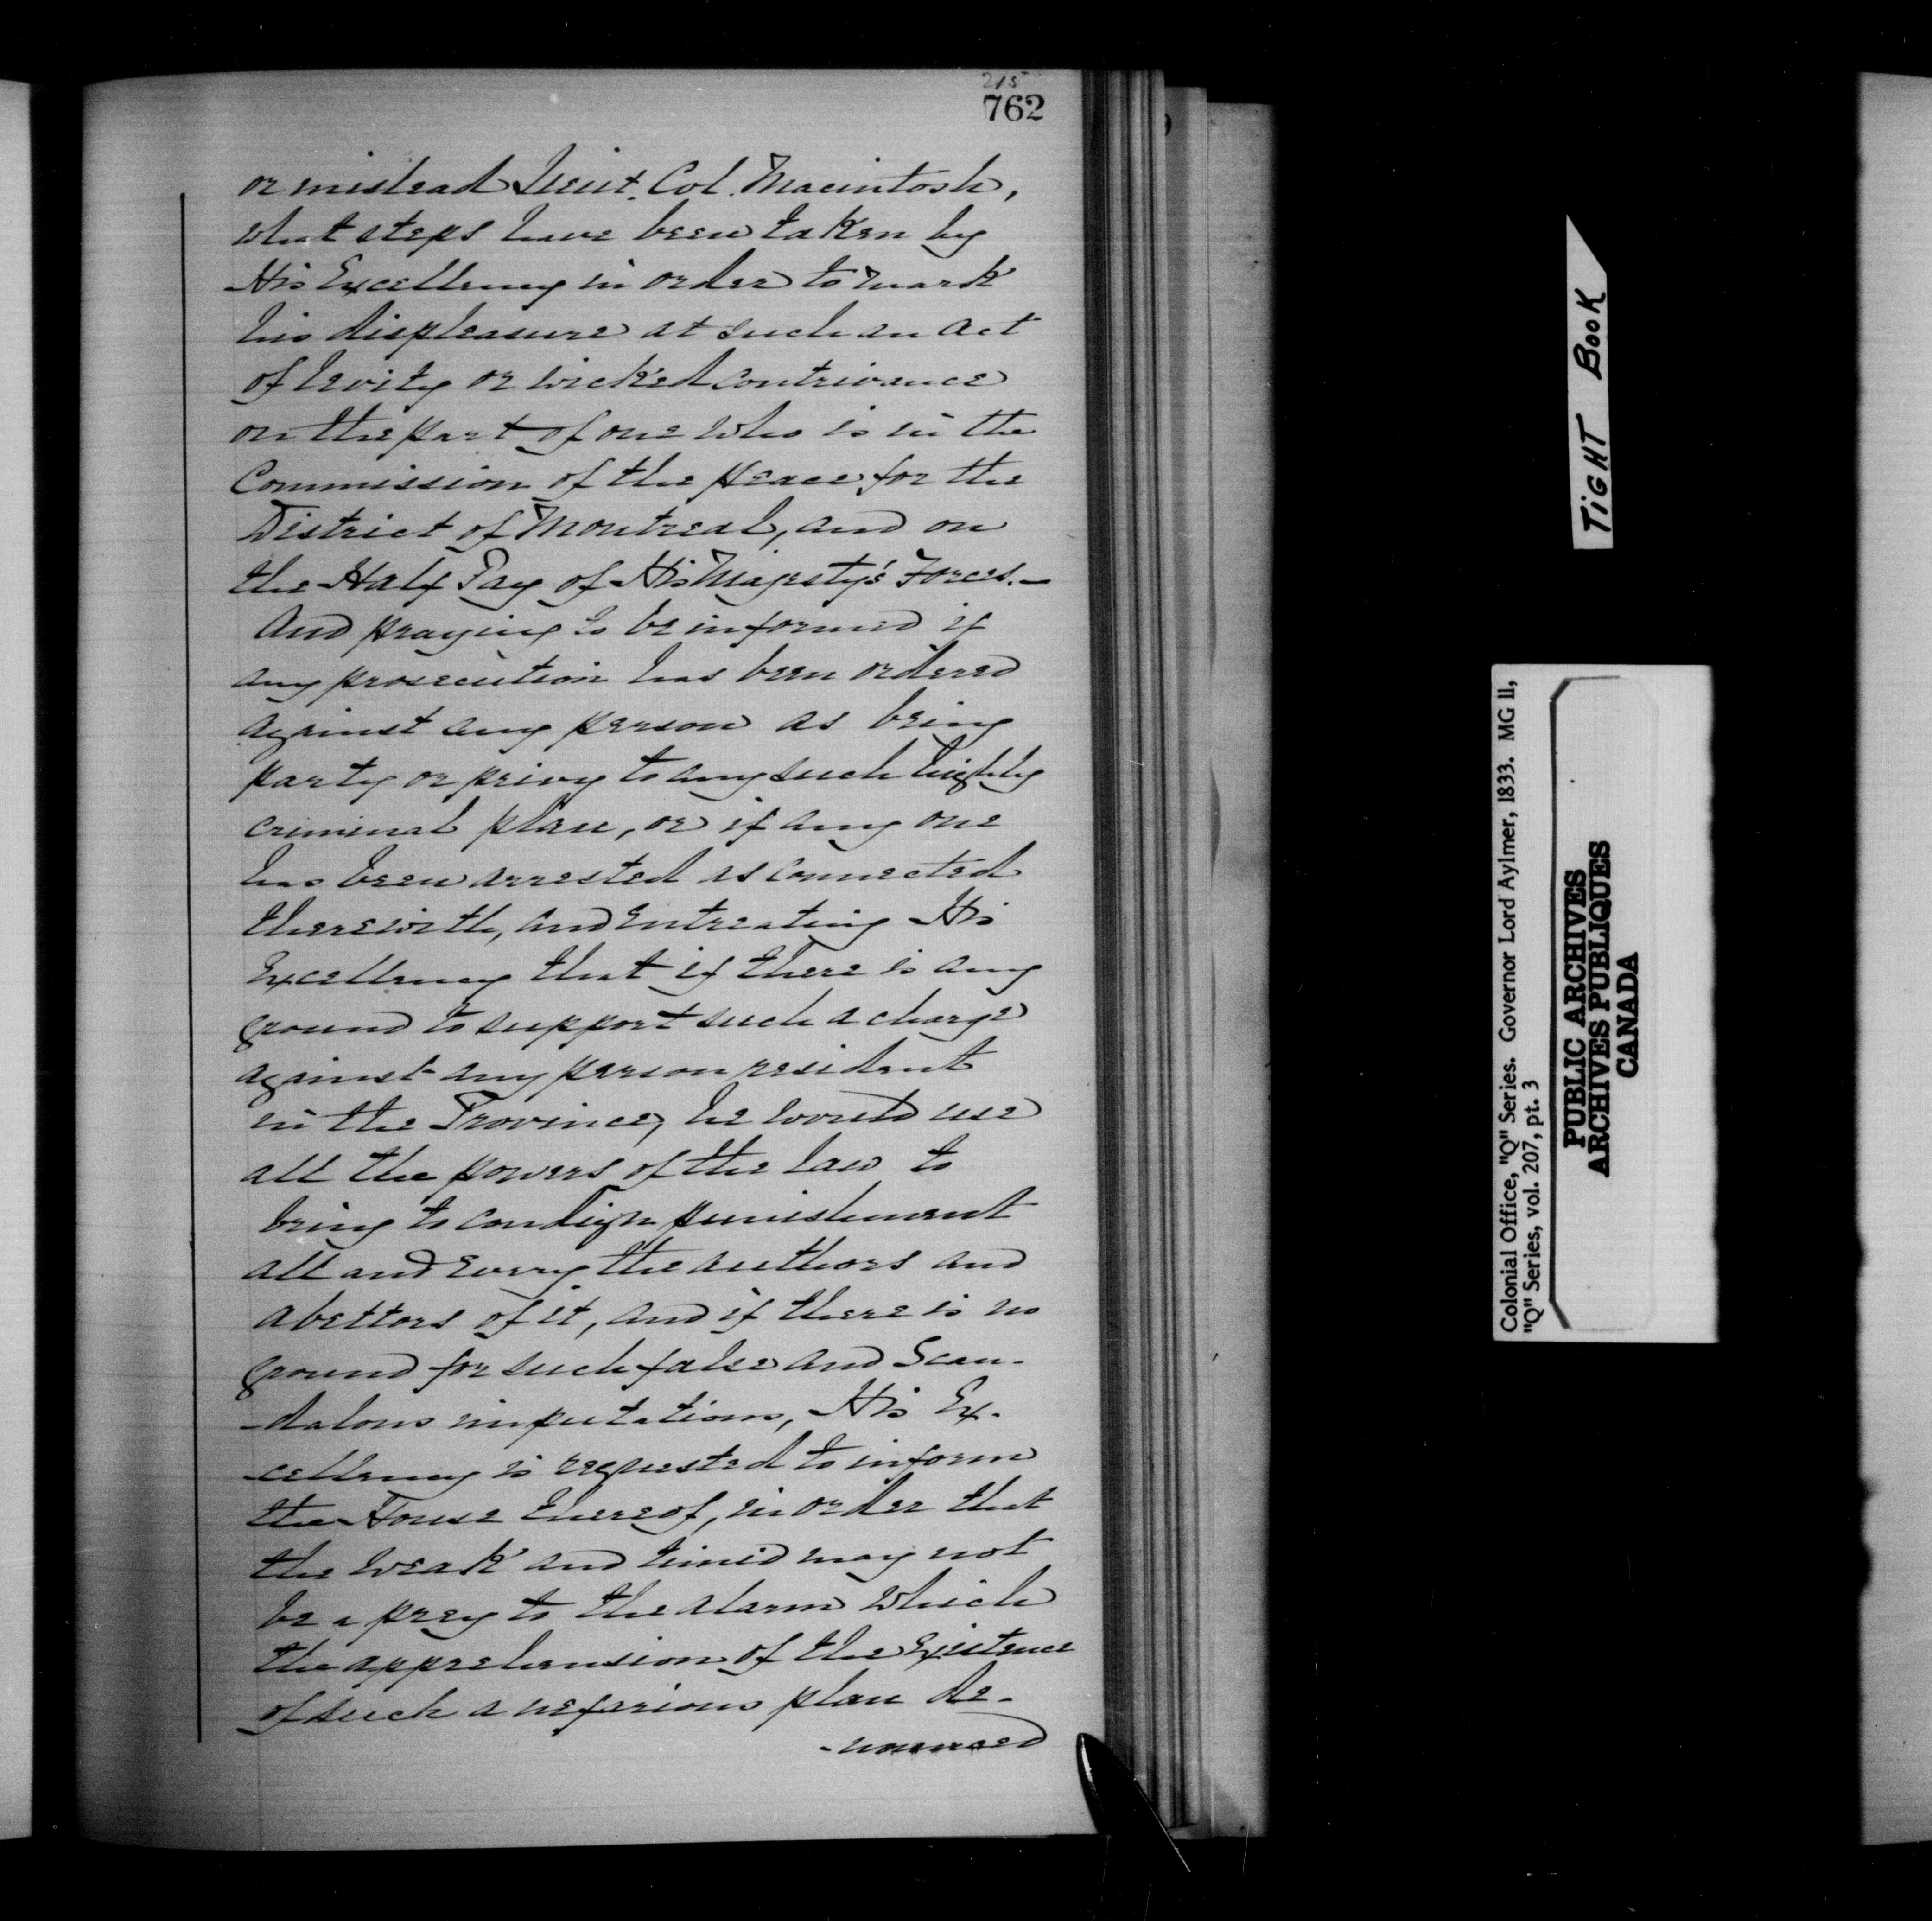 215
762
or mislead Lieut. Col. Macintosh,
what steps have been taken by
His Excellency in order to mark
his displeasure at such an act
of levity or wicked contrivance
on the part of one who is in the
Commission of the peace for the
District of Montreal, and on
the Half Pay of His Majesty's Forces.—
And praying to be informed if
any prosecution has been ordered
against any person as being
party or privy to any such highly
criminal plan, or if any one
has been arrested as connected
therewith, and entreating His
Excellency that if there is any
ground to support such a charge
against any person resident
in the Province, he would use
all the powers of the law to
bring to condign punishment
all and every the authors and
abettors of it, and if there is no
ground for such false and Scan-
-dalous imputations, His Ex-
-cellency is requested to inform
the House thereof, in order that
the weak and timid may not
be a prey to the alarm which
the apprehension of the Existence
of such a nefarious plan de-
-nounced
TiGHT BOOK
Colonial Office, "Q" Series. Governor Lord Aylmer, 1833. MG 11,
"Q" Series, vol. 207, pt. 3
PUBLIC ARCHIVES
ARCHIVES PUBLIQUES
CANADA